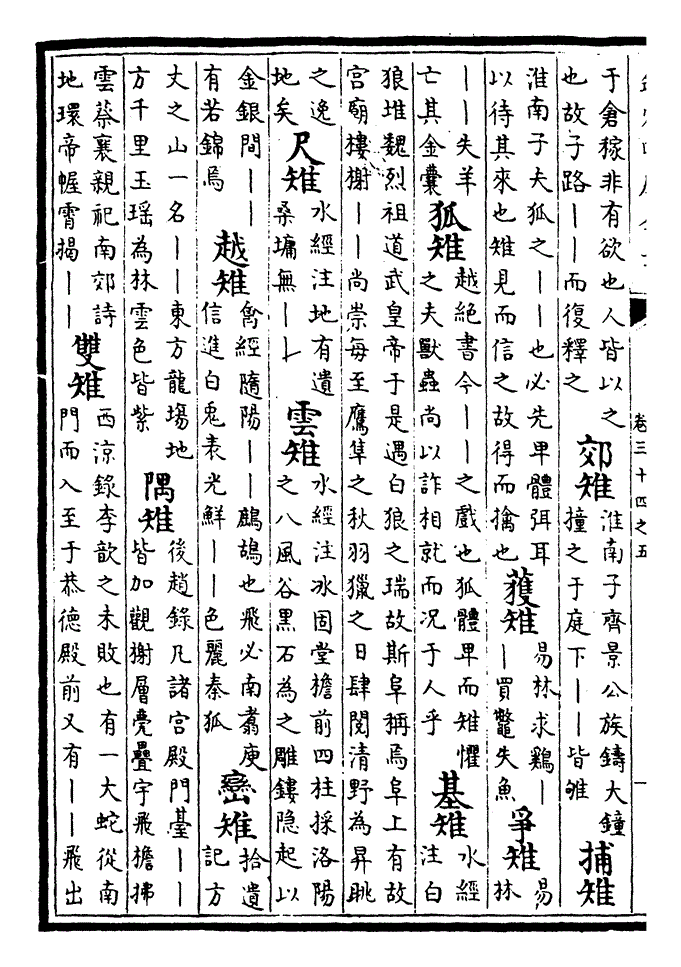 于倉稼非有欲也人皆以之
也故子路——而復釋之
郊雉
淮南子齊景公族鑄大鐘
撞之于庭下——皆雊
捕雉
淮南子夫狐之——也必先卑體弭耳
以待其來也雉見而信之故得而擒也
獲雉
易林求鷄—
—買鼈失魚
爭雉
易
林
——失羊
亡其金囊
狐雉
越絕書今——之戲也狐體卑而雉懼
之夫獸蟲尚以詐相就而況于人乎
基雉
水經
注白
狼堆魏烈祖道武皇帝于是遇白狼之瑞故斯阜稱焉阜上有故
宮廟樓榭——尚崇每至鷹隼之秋羽獵之日肆閱清野為昇眺
之逸
地矣
尺雉
水經注地有遺
桑墉無——
雲雉
水經注冰固堂檐前四柱採洛陽
之八風谷黑石為之雕鏤隱起以
金銀間——
有若錦焉
越雉
禽經隨陽——鷓鴣也飛必南翥庾
信進白兔表光鮮——色麗秦狐
巒雉
拾遺
記方
丈之山一名——東方龍場地
方千里玉瑶為林雲色皆紫
隅雉
後趙錄凡諸宮殿門臺——
皆加觀榭層甍疊宇飛檐拂
雲蔡襄親祀南郊詩
地環帝幄霄揭——
雙雉
西涼錄李歆之未敗也有一大蛇從南
門而入至于恭德殿前又有——飛出
卷三十四之五
一